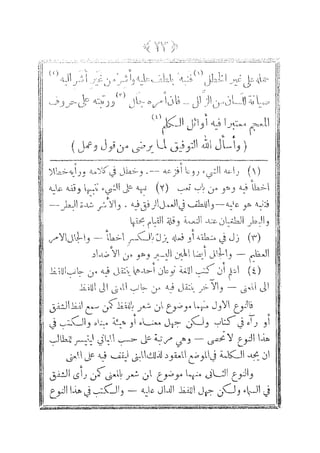 ﴿ ٢٢ ﴾
حمله على غير الخطل (١) فنبه بلطف عليه وأشر من غير أشر اليه (٢)
صيانة اللسان من الزلل — فان أمره جلل (٣) ورتبته على حروف
المعجم معتبرا فيه أوائل الكلم (٤)
( وأسأل الله التوفيق لما يرضى من قول وعمل )
(١) راعه الشيء روعا أفزعه — وخطل في كلامه ورأيه خطلا
اخطأ فيه وهو من باب تعب (٢) نبه على الشيء تنبيها وقفه عليه
فتنبه هو عليه — واللطف في العمل الرفق فيه . والأشر شدة البطر —
والبطر الطغيان عند النعمة وقلة القيام بحقها
(٣) زل في منطقه أو فعله يزل بالكسر اخطأ — والجلل الامر
العظيم — والجلل أيضا الهين اليسير وهو من الأضداد
(٤) اعلم أن كتب اللغة نوعان أحدهما ينتقل فيه من جانب اللفظ
الى المعنى — والآخر ينتقل فيه من جانب المعنى الى اللفظ
فالنوع الاول منهما موضوع لمن شعر باللفظ كمن سمع لفظ الشفق
أو رآه في كتاب ولكن جهل معناه أو هيئة مبناه والكتب في
هذا النوع لا تحصى — وهي مرتبة على حسب المباني ليتيسر للمطالب
ان يجد الكلمة في الموضع المعقود لذلك المبنى ليقف فيه على المعنى
والنوع الثاني منهما موضوع لمن شعر بالمعنى كمن رأى الشفق
في السماء ولكن جهل اللفظ الدال عليه — والكتب في هذا النوع